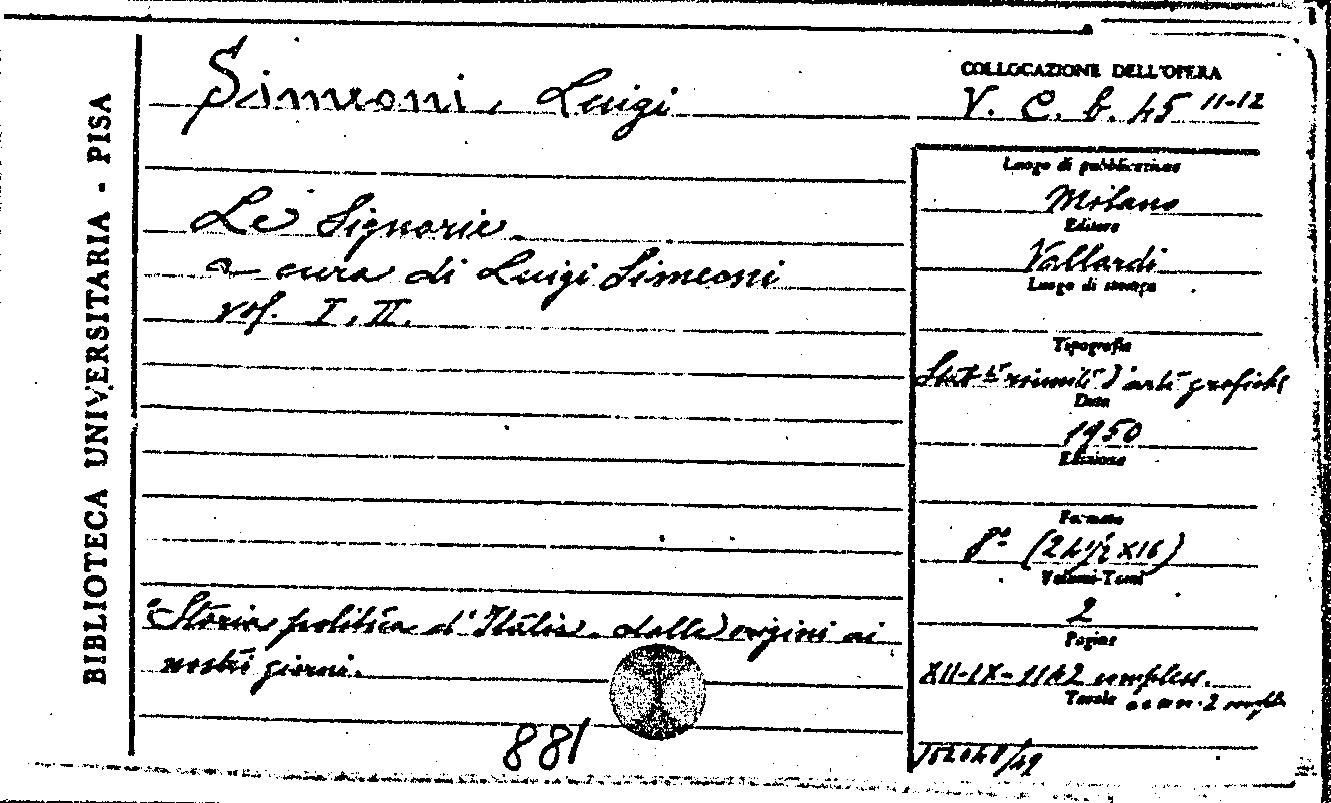 BIBLIOTECA UNIVERSITARIA - PISA
Simeoni, Luigi
Le Signorie.
a cura di Luigi Simeoni
vol. I, II.
Storia politica d'Italia. dalle origini ai
nostri giorni.
881
COLLOCAZIONE DELL'OPERA
V. C. b. 45 11-12
Luogo di pubblicazione
Milano
Editore
Vallardi
Luogo di stampa
Tipografia
riuniti d'arti grafiche
Data
1950
Edizione
Formato
8° (24½ X16)
Volumi-Tomi
2
Pagine
XII-IX- 1142 compless.
Tavole